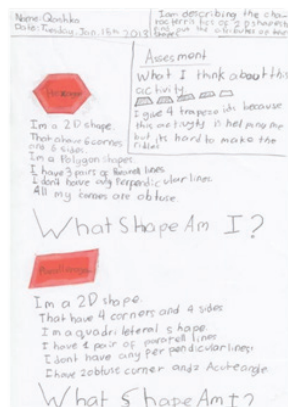 Name: Qashka
Date: Tuesday, Jan. 15th 2013
I am describing the cha-
racteristics of 2D shapes to
find out the attributes of
Assesment
What I think about this
activity
I give 4 trapezoids because
this activity is helping me
but its hard to make the
Hexagon
Im a 2D shape.
That have 6 corners
and 6 sides.
Im a Polygon shapes
I have 3 pairs of Pararell lines
I dont have any Perpendicular lines
All my cornes are obtuse.
What Shape Am I?
Im a 2D shape.
That have 4 corners and 4 sides
I m a quadrilateral shape
I have 1 pair of pararell lines
I dont have any perpendicular lines
I have 2 obtuse corner and 2 Acute angle.
What Shape Am I?